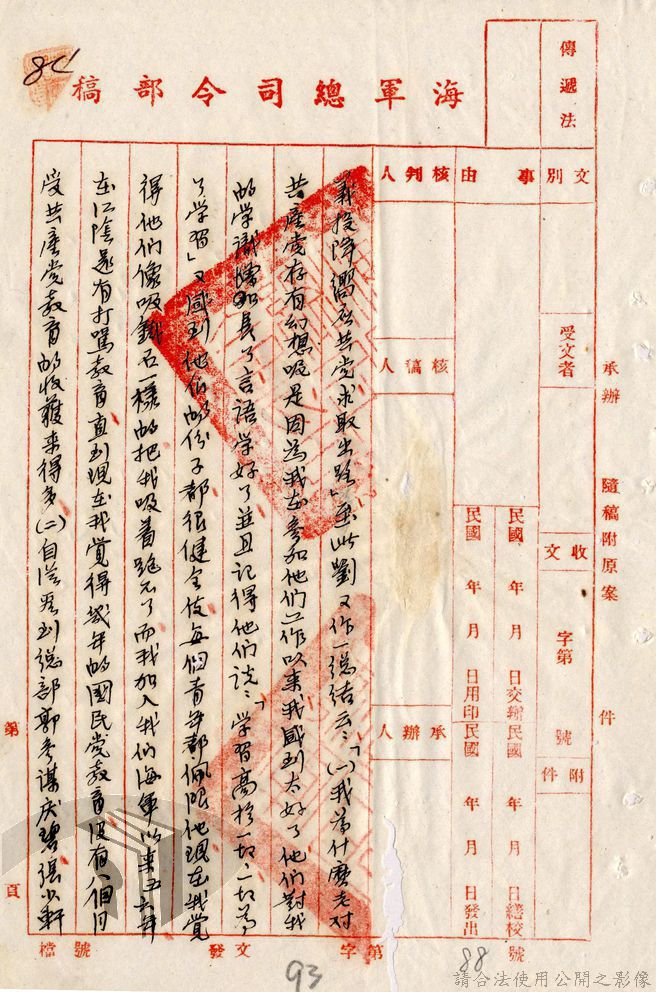 傳遞法
海軍總司令部稿
84
承辦 隨稿附原案 件
文別
事由
核判人
受文者
核稿人
收文 字第 號
附件
民國 年 月 日交辦
民國 年 月 日用印
民國 年 月 日繕校
民國 年 月 日發出
承辦人
義投降嚮應共党求取出路」至此劉又作一總結云:「(一)我為什麼老对
共產党存有幻想呢是因為我在參加他們工作以来我感到太好了他們對我
的学識增加長了言語学好了並且記得他們說:「学習高於一切一切為
了学習」又感到他們的份子都很健全使每個青年都佩服他現在我覺
得他們像吸鉄石一樣的把我吸着跑不了而我加入我們海軍以来五六年
在江陰還有打罵教育直到現在我覺得幾年的國民党教育沒有八個月
受共產党教育的收獲来得多(二)自從奉到總部郭參謀 張
第 頁
檔號
發文 字第 號
88
93
請合法使用公開之影像